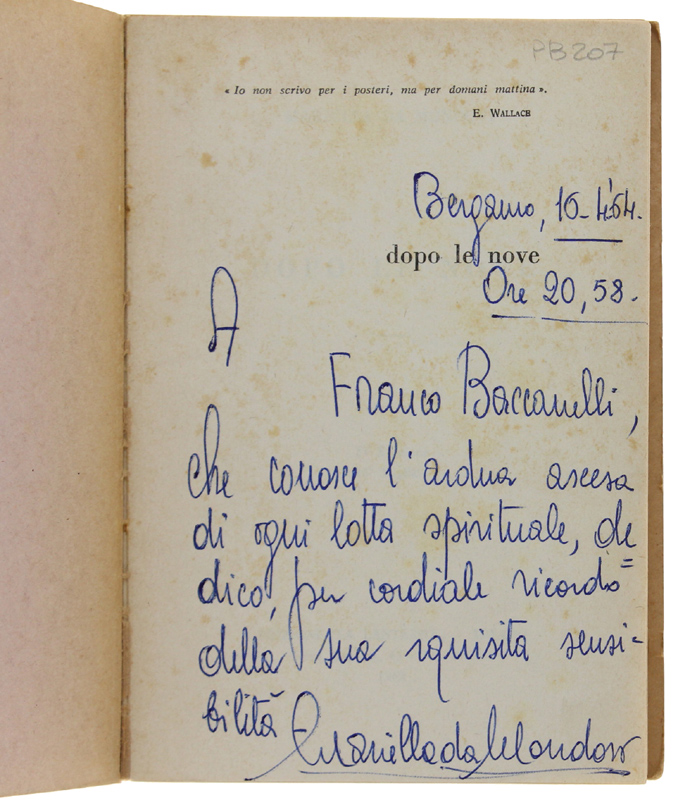 PB 207
« Io non scrivo per i posteri, ma per domani mattina ».
E. WALLACE
Bergamo, 10-4-'54.
dopo le nove
Ore 20,58.
A
Franco Baccanelli,
che conosce l'ardua ascesa
di ogni lotta spirituale, de=
dico, per cordiale ricordo
della sua squisita sensi-
bilità